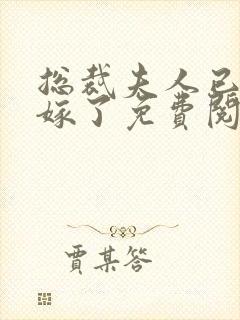 总裁夫人已
嫁了免費閱
賈某答